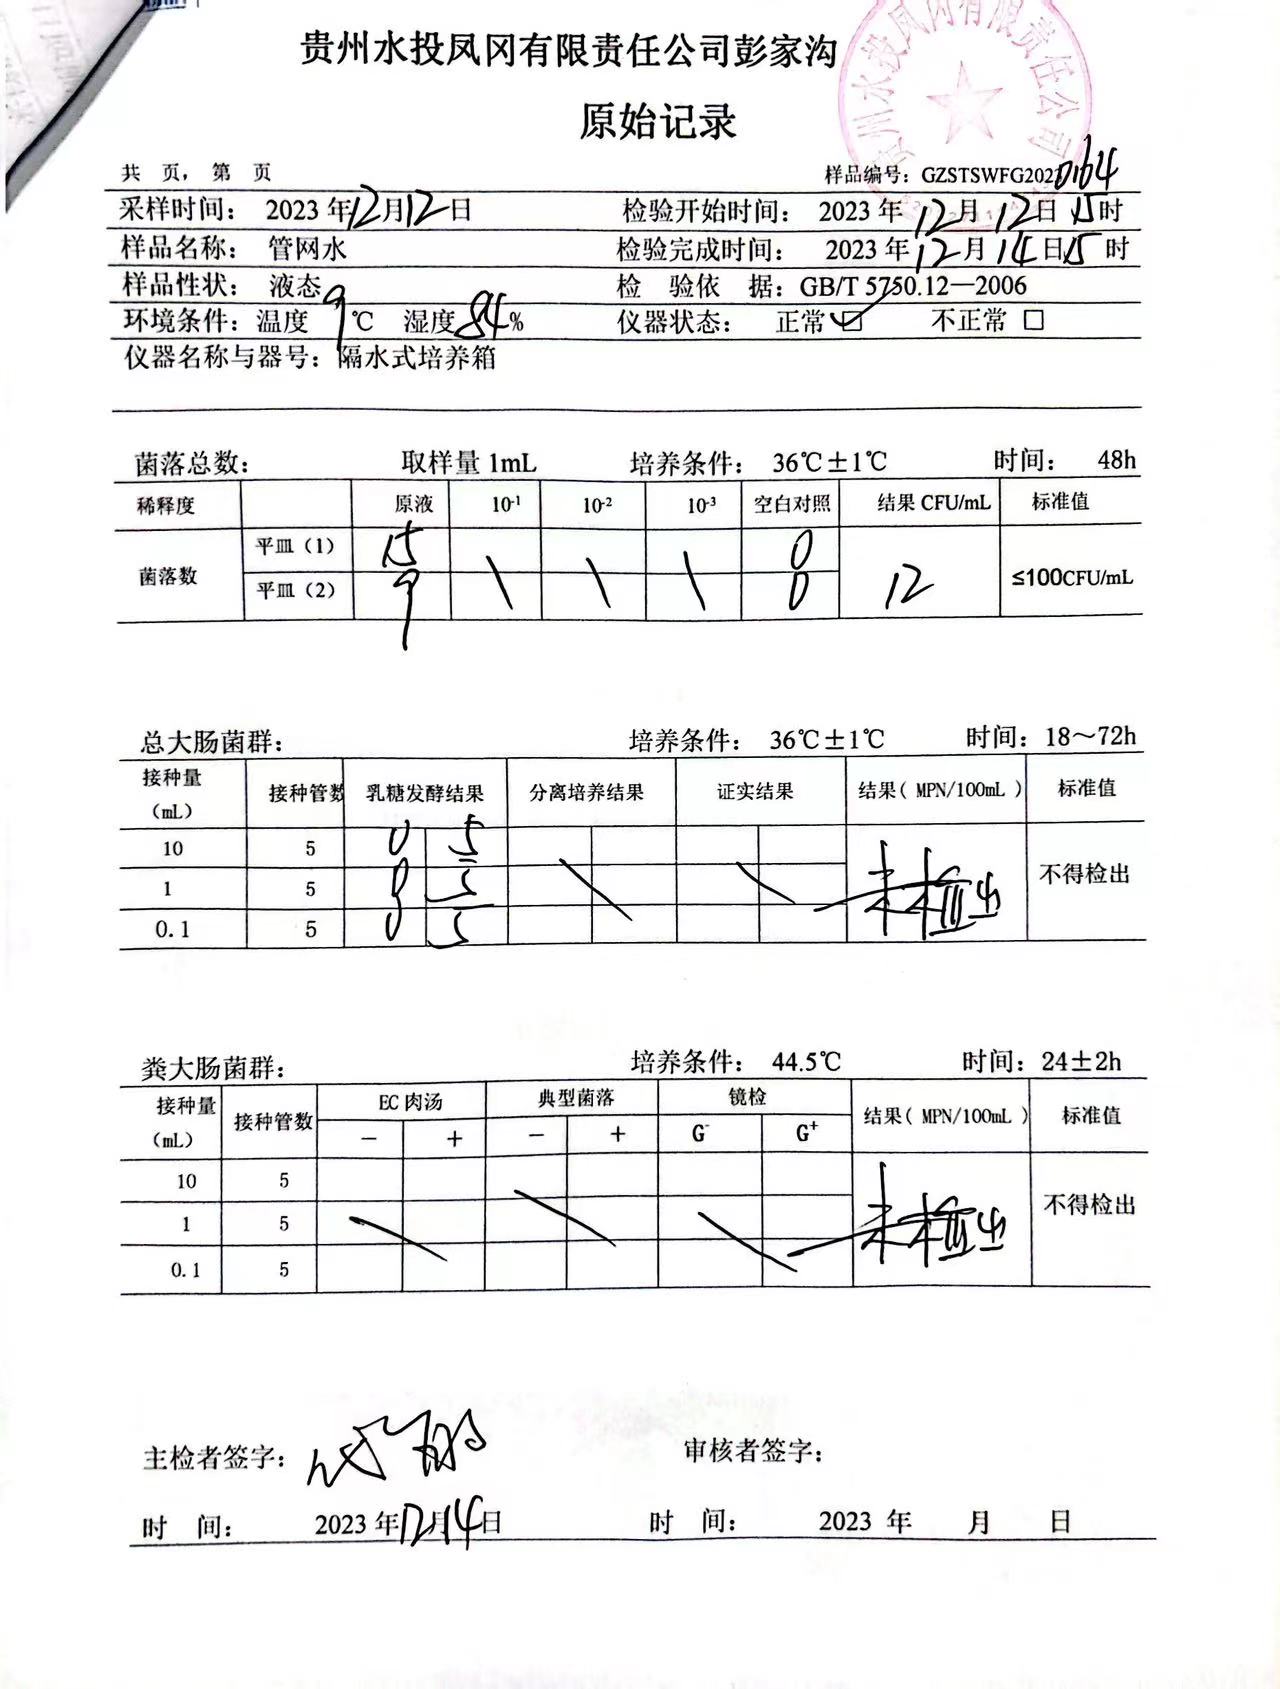 贵州水投凤冈有限责任公司彭家沟
原始记录
贵州水投凤冈有限责任公司
共 页， 第 页 样品编号：GZSTSWFG20220164
采样时间： 2023年12月12日 检验开始时间： 2023年12月12日15时
样品名称： 管网水 检验完成时间： 2023年12月14日15时
样品性状： 液态 检 验依 据：GB/T 5750.12—2006
环境条件：温度 9℃ 湿度84% 仪器状态： 正常☑ 不正常□
仪器名称与器号：隔水式培养箱
菌落总数： 取样量1mL 培养条件： 36℃±1℃ 时间： 48h
稀释度 原液 10-1 10-2 10-3 空白对照 结果CFU/mL 标准值
菌落数 平皿（1） 15 \ \ \ 0 12 ≤100CFU/mL
平皿（2） 9 0
总大肠菌群： 培养条件： 36℃±1℃ 时间：18～72h
接种量（mL） 接种管数 乳糖发酵结果 分离培养结果 证实结果 结果（MPN/100mL） 标准值
10 5 0 5 \ \ 未检出 不得检出
1 5 0 5
0.1 5 0 5
粪大肠菌群： 培养条件： 44.5℃ 时间：24±2h
接种量（mL） 接种管数 EC肉汤 典型菌落 镜检 结果（MPN/100mL） 标准值
－ ＋ － ＋ G- G+
10 5 \ \ \ 未检出 不得检出
1 5
0.1 5
主检者签字： 审核者签字：
时 间： 2023年12月14日 时 间： 2023 年 月 日